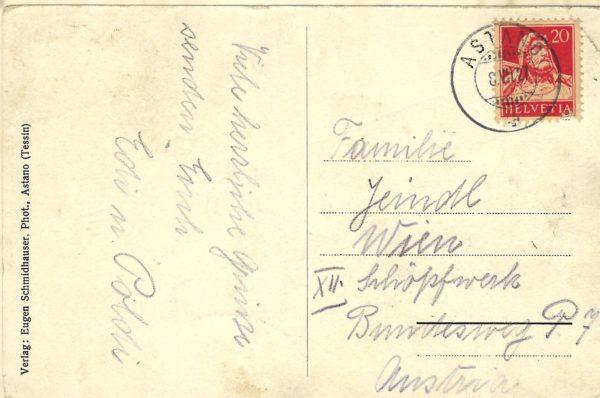 Viele herzliche Grüsse
senden Euch
Edi u. Poldi
Verlag: Eugen Schmidhauser, Phot., Astano (Tessin)
ASTANO
20
HELVETIA
Familie
Wien
XII.
Schöpfwerk
Bundesweg P. 7
Austria